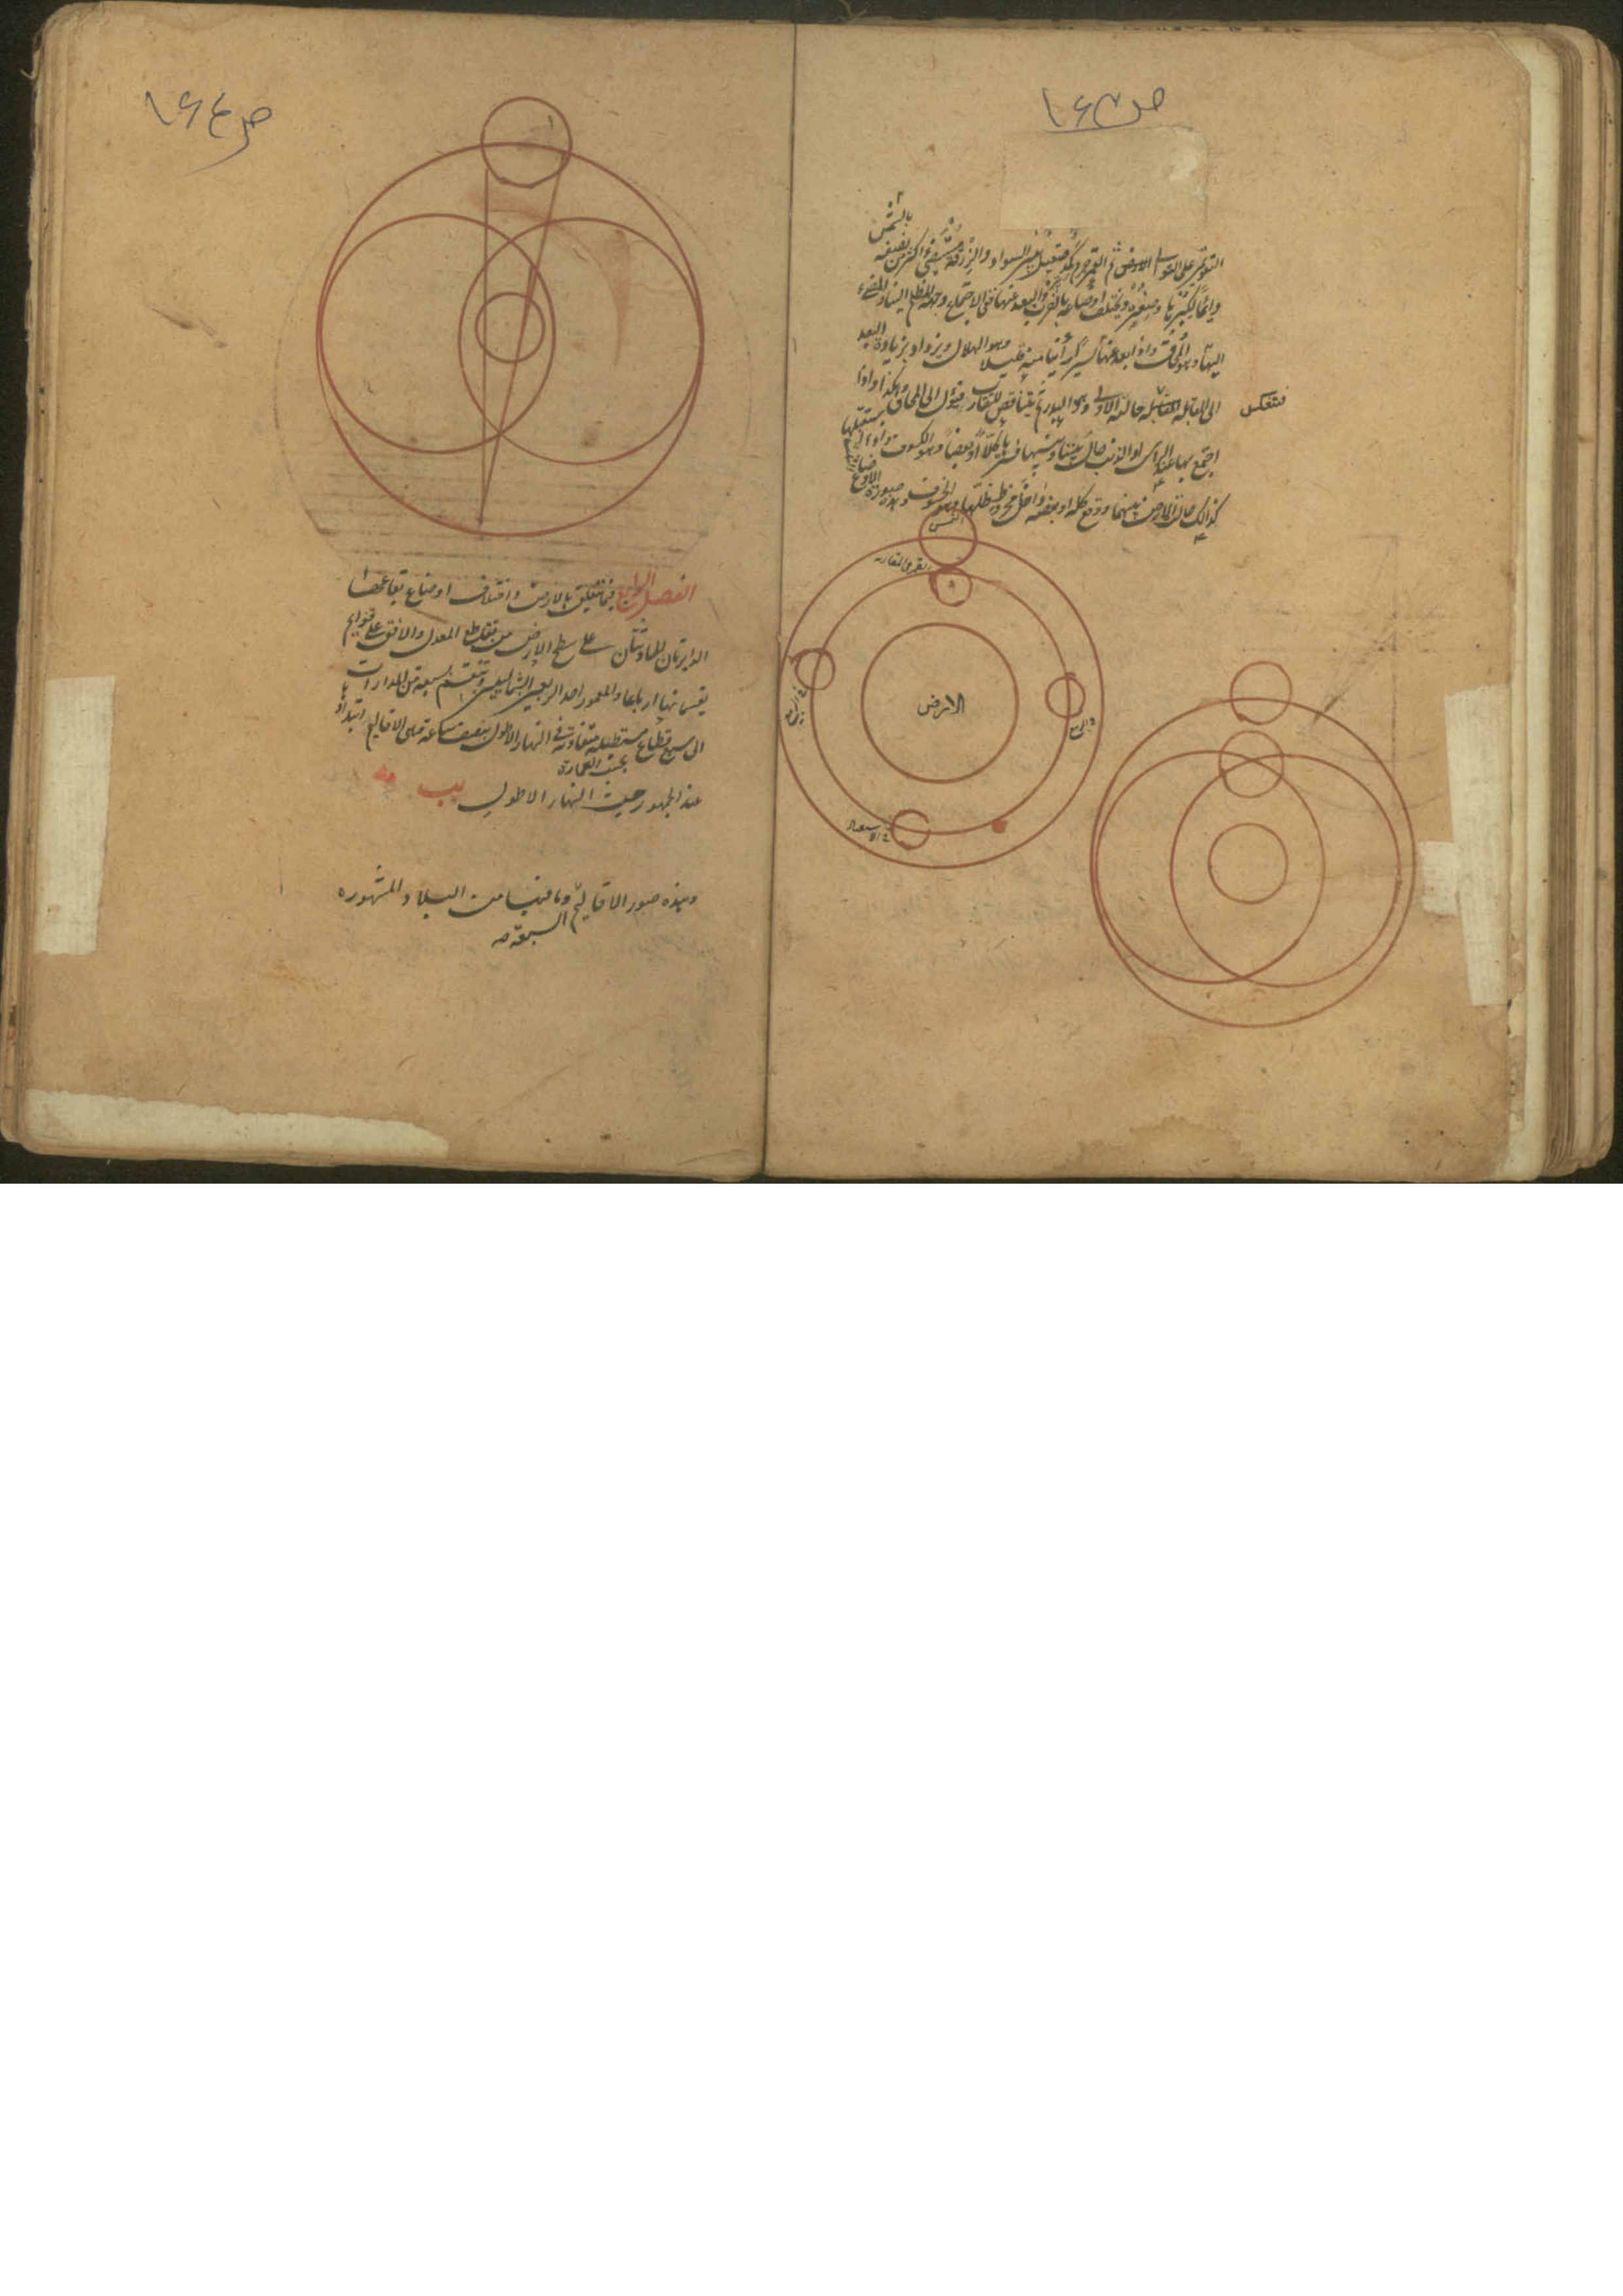 ص ١٦٣
بالشمس
التوتر على التوالى ثم القمر جرم كمد صقيل بين السواد والزرقة يستضئ اكثر من نصفه
دائما لكبرها وصغره ويختلف اوضاعه بالقرب والبعد عنها ففى الاجتماع وجهه المظلم الينا والمضئ
اليها وهو المحاق واذا بعد عنها يسيرا رأينا منه قليلا وهو الهلال ويزداد بزيادة البعد
الى المقابلة حالته الاولى وهو البدر ثم يتناقص للتقارب فيؤل الى المحاق وهكذا واذا
فتنعكس
اجتمع بها عند الرأس او الذنب حال بيننا وبينها فسترها كلا او بعضا وهو الكسوف واذا استقبلها
كذالك حالت الارض بينهما ووقع كله او بعضه داخل مخروط ظلها وهو الخسوف وهذه صورة الاوضاع
الشمس
القمر فى المقارنة
الارض
ص ١٦٤
الفصل الرابع فيما يتعلق بالارض واختلاف اوضاع بقاعها
الدايرتان الحادثتان على سطح الارض من تقاطع المعدل والافق على قوايم
يقسمانها ارباعا والمعمور احد الربعين الشماليين وتنقسم بسبعة من المدارات
الى سبع قطاع مستطيلة متفاوتة فى النهار الاطول بنصف ساعة هى الاقاليم ابتداؤها
بحسب العمارة
عند الجمهور حيث النهار الاطول يب مه
وهذه صور الاقاليم وما فيها من البلاد المشهوره
السبعة